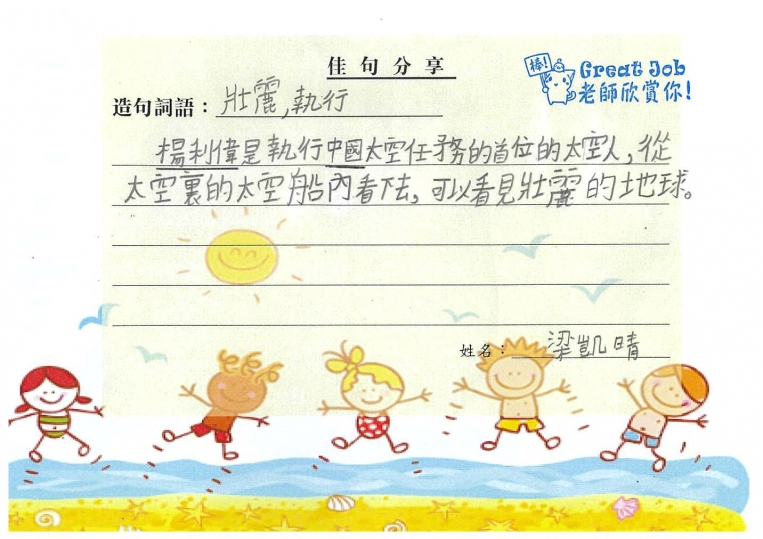 佳句分享
棒!
Great Job
老師欣賞你!
造句詞語：壯麗,執行
楊利偉是執行中國太空任務的首位的太空人,從
太空裏的太空船內看下去,可以看見壯麗的地球。
姓名：梁凱晴